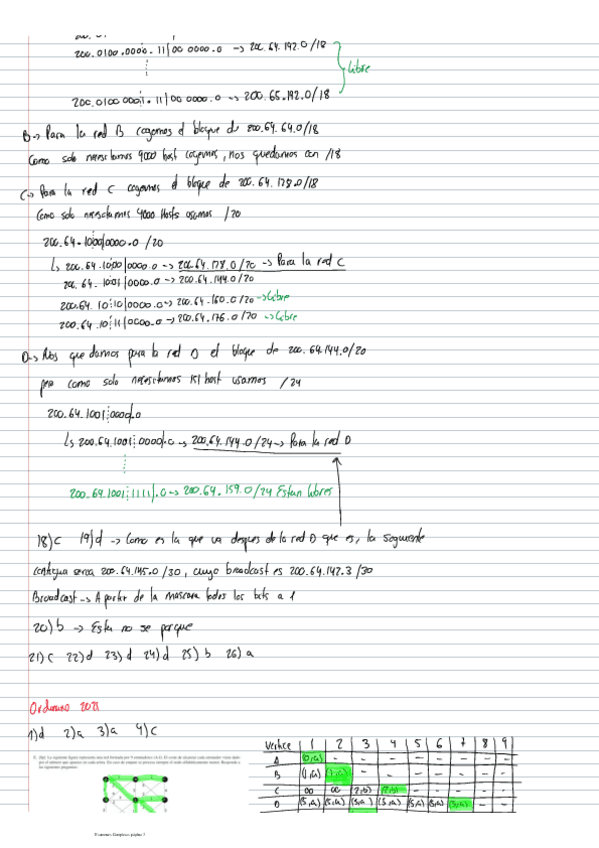 200.0100 0000. 11|00 0000.0 -> 200.64.192.0/18
Libre
200.0100 0001. 11|00 0000.0 -> 200.65.192.0/18
B-> Para la red B cogemos el bloque de 200.64.64.0/18
Como solo necesitamos 9000 host cogemos, nos quedamos con /18
C-> Para la red C cogemos el bloque de 200.64.128.0/18
Como solo necesitamos 4000 Hosts usamos /20
200.64.1000|0000.0 /20
L> 200.64.1000|0000.0 -> 200.64.128.0/20 -> Para la red C
200.64.1001|0000.0 -> 200.64.144.0/20
200.64.1010|0000.0 -> 200.64.160.0/20 -> Libre
200.64.1011|0000.0 -> 200.64.176.0/20 -> Libre
D-> Nos quedamos para la red D el bloque de 200.64.144.0/20
pero como solo necesitamos 151 host usamos /24
200.64.1001|0000|.0
L> 200.64.1001|0000|.0 -> 200.64.144.0/24 -> Para la red D
200.64.1001|1111|.0 -> 200.64.159.0/24 Estan libres
18)c 19)d -> Como es la que va despues de la red D que es, la siguiente
contigua seria 200.64.145.0/30, cuyo broadcast es 200.64.147.3/30
Broadcast -> A partir de la mascara todos los bits a 1
20) b -> Esta no se porque
21) c 22) d 23) d 24) d 25) b 26) a
Ordinario 2021
1)d 2)a 3)a 4)c
Vertice | 1 | 2 | 3 | 4 | 5 | 6 | 7 | 8 | 9
A | (0,a) | - | - | - | - | - | - | - | -
B | (1,a) | (1,a) | - | - | - | - | - | - | -
C | ∞ | ∞ | (2,b) | (2,b) | - | - | - | - | -
D | (5,a) | (5,a) | (5,a) | (5,a) | (5,a) | (5,a) | (5,a) | - | -